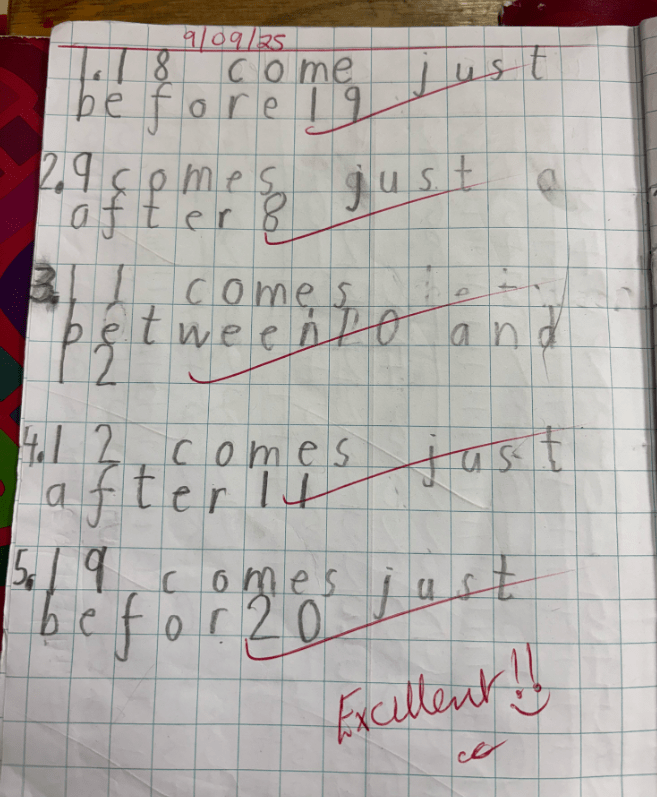 9/09/25
1. 18 come just
before 19
2. 9 comes just a
after 8
3. 11 comes
between 10 and
12
4. 12 comes just
after 11
5. 19 comes just
befor 20
Excellent!!